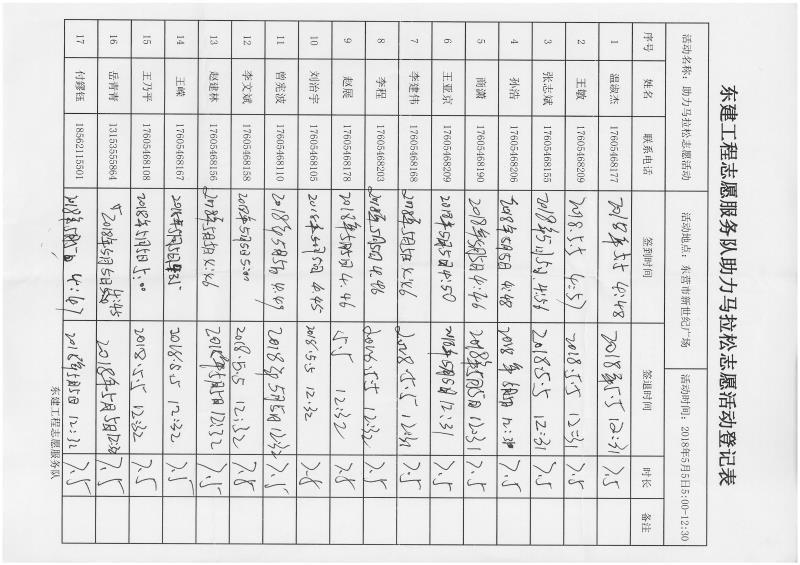 东建工程志愿服务队助力马拉松志愿活动登记表
活动名称：助力马拉松志愿活动 活动地点：东营市新世纪广场 活动时间：2018年5月5日5:00-12:30
序号 姓名 联系电话 签到时间 签退时间 时长 备注
1 温淑杰 17605468177 2018年5.5 4:48 2018年5.5 12:31 7.5
2 王敏 17605468209 2018.5.5 4:57 2018.5.5 12:31 7.5
3 张志斌 17605468155 2018年5月5日 4:54 2018.5.5 12:31 7.5
4 孙浩 17605468206 2018年5月5日 4:48 2018年5月5日 7.5
5 商潇 17605468190 2018年5月5日 4:46 2018年5月5日 12:31 7.5
6 王亚京 17605468209 2018年5月5日 4:50 2018年5月5日 12:31 7.5
7 李建伟 17605468168 2018年5月5日 4:46 2018.5.5 1231 7.5
8 李程 17605468203 2018年5月5日 4:46 12:32 7.5
9 赵展 17605468178 2018年5月5日 4:46 5.5 12:32 7.8
10 刘治宇 17605468105 4:45 2018.5.5 12:32 7.8
11 曾宪波 17605468110 2018年5月5日 4:49 2018年5月5日 12:32 7.5
12 李文斌 17605468158 2018年5月5日 5:00 2018.5.5 12:32 7.8
13 赵建林 17605468156 2018年5月5日 4:46 2018年5月5日 12:32 7.5
14 王嵘 17605468167 2018年5月5日 2018.5.5 12:32 7.5
15 王乃平 17605468108 2018年5月5日 5:00 2018.5.5 12:32 7.5
16 岳青青 13153555864 2018年5月5日 4:45 2018年5月5日 12:30 7.5
17 付鏐钰 18562115501 2018年5月5日 4:47 2018年5月5日 12:32 7.5
东建工程志愿服务队